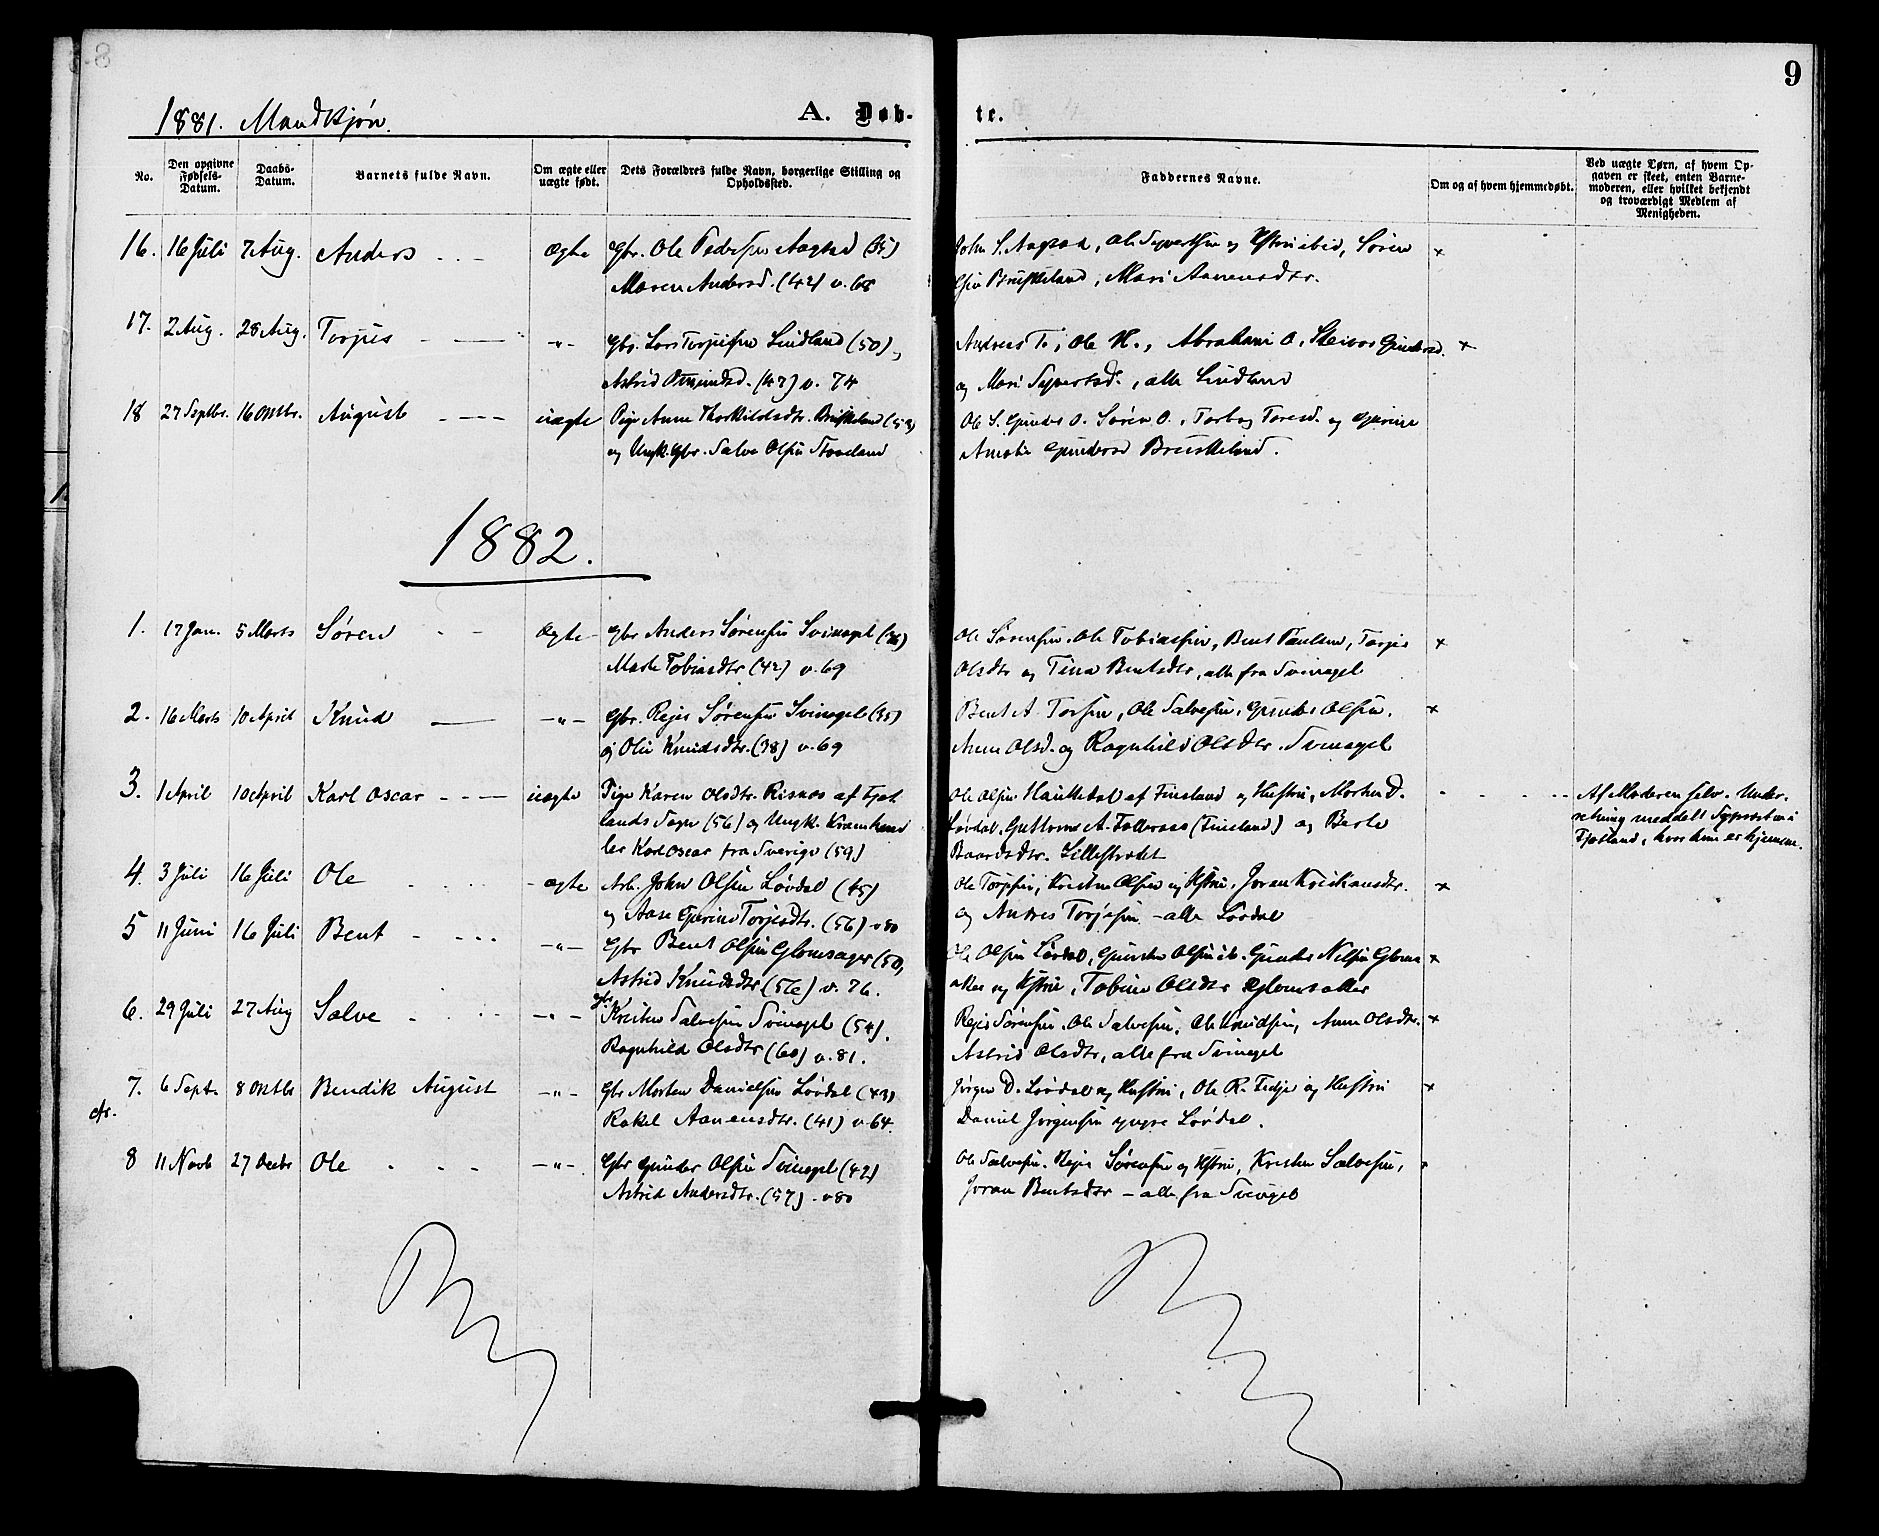 8
9
1881. Mandkjøn.
A. Døb-
te.
No.
Den opgivne Fødsels-Datum.
Daabs-Datum.
Barnets fulde Navn.
Om ægte eller uægte født.
Dets Forældres fulde Navn, borgerlige Stilling og Opholdssted.
Faddernes Navne.
Om og af hvem hjemmedøbt.
Ved uægte Børn, af hvem Op-
gaven er skeet, enten Barne-
moderen, eller hvilket bekjendt
og troværdigt Medlem af
Menigheden.
16. 16 Juli 7 Aug. Anders - - - Ægte Gbr. Ole Pedersen Aagsad (35)
Maren Andersd. (42) v. 68
John S. Aagsad, Ole Syvertsen og Hstru ibid, Søren
Bruskeland, Mari Aanensdtr. +
17. 2 Aug. 28 Aug. Torjus - — -"- Gbr. Lars Torjusen Lindland (50),
Astrid Osmundsd. (47) v. 74
Andreas T., Ole H., Abraham O, Gundersd. +
og Mari Syvertsd., alle Lindland
18 27 Septbr. 16 Oktbr. August - - - - uægte Pige Anne Thorkildsdtr. Bruskeland (53)
og Ungk. Gbr. Salve Olsen Stoveland
Ole S. Gunder O. Søren O., Torbog Toresd. og Gurine
Amalie Gundersd Bruskeland.
1882.
1. 17 Jan. 5 Marts Søren - - Ægte - Gbr Anders Sørensen Svinagel
Marte Tobiasdtr (42) v. 69
Ole Sørensen. Ole Tobiassen, Bent Paulsen, Torjer +
Olsdtr og Tina Bentsdtr, alle fra Svinagel
2. 16 Marts 10 April Knud — -"- Gbr. Rejer Sørensen Svinagel (35)
og Olu Knudsdtr. (38) v. 69
Bent A. Torsen, Ole Salvesen, Gunder Olsen. +
Anne Olsd. og Ragnhild Olsdtr. Svinagel
3. 1 April 10 April Karl Oscar - - — uægte Pige Karen Olsdtr. Risnes af Fjot-
lands Sogn (56) og Ungk. Kramhand
ler Karl Oscar fra Sverige (59)
Ole Olsen Haukedal af Finsland og Hustru, Morten D.
Løvdal. Guttorm A. Folleraas (Finsland) og Berte
Baardsdtr. Lillestrødet
Af Moderen selv. Under-
retning meddelt Sognepr i
Fjotland, hvor hun er hjemme.
4. 3 Juli 16 Juli Ole - ægte Arb. John Olsen Løvdal (45)
og Aase Gurine Torjesdtr. (56) v 80
Ole Torjesen, Kristen Olsen og Hstru, Joran Kristiansdtr. +
og Andres Torjesen - alle Løvdal
5 11 Juni 16 Juli Bent - - - - -"- Gbr Bent Olsen Glomsager (50,
Astrid Knudsdtr (56) v. 76.
Ole Olsen Løvdal, Gunder Olsen ib. Gunder Nilsen Gloms +
aker og Hstru, Tobine Olsdtr Glomsaker
6. 29 Juli 27 Aug Salve -"- Gbr Kristen Salvesen Svinagel (54).
Ragnhild Olsdtr (60) v. 81.
Rejer Sørensen. Ole Salvesen, Ole Knudsen, Anne Olsdtr. +
Astrid Olsdtr, alle fra Svinagel
7. 6 Sept. 8 Oktbr Bendik August -"- Gbr Morten Danielsen Løvdal (43)
cfr.
Rakel Aanensdtr. (41) v. 64.
Jørgen D. Løvdal og Hustru, Ole R. Tedje og Hustru +
Daniel Jørgensen yngre Løvdal.
8 11 Novb 27 Decbr Ole - - - -"- Gbr Gunder Olsen Svinagel (42)
Astrid Andersdtr. (57). v 80
Ole Salvesen. Rejer Sørensen og Hstru, Kristen Salvesen,
Joran Bentsdtr - alle fra Svinagel